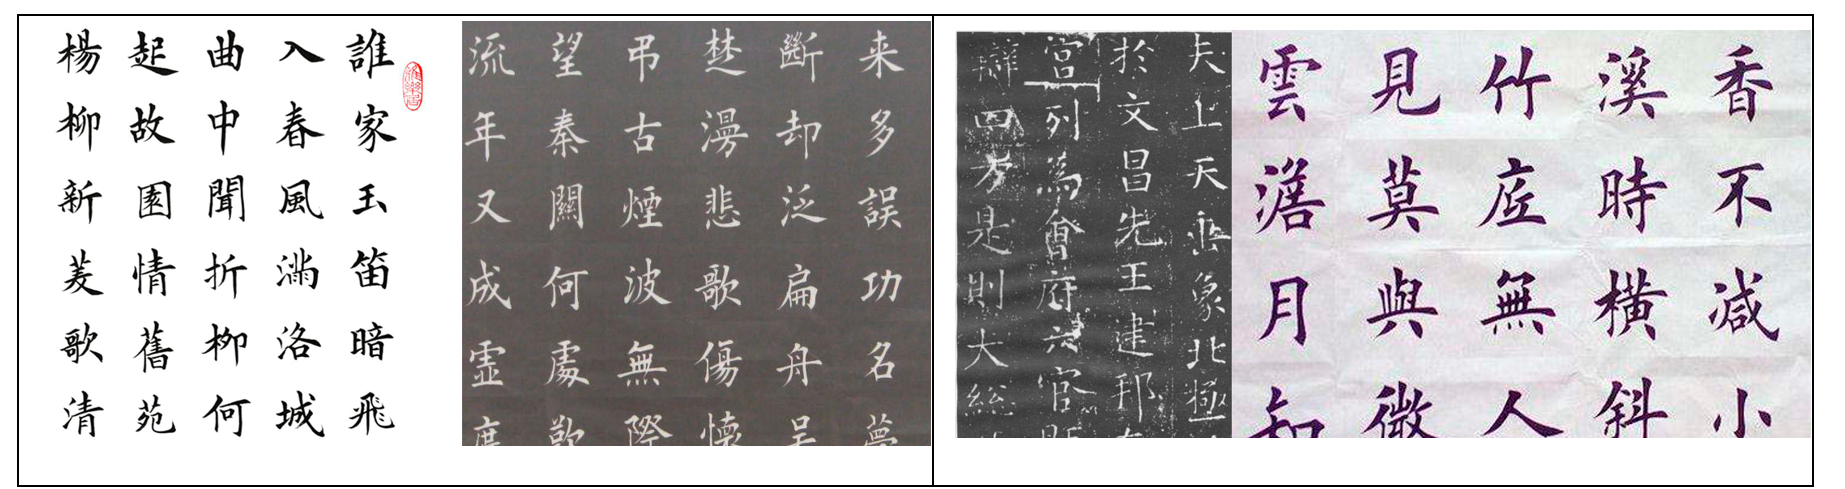 誰家玉笛暗飛
入春風滿洛城
曲中聞折柳何
起故園情舊苑
楊柳新菱歌清
来多誤功名夢
斷却泛扁舟吴
楚漫悲歌傷懷
弔古煙波無際
望秦關何處歎
流年又成虚度
夫上天垂象北極
於文昌先王建邦
宮列為會府六官
辯四方是則大総
香不減小
溪時橫斜
竹底無人
見莫與微
雲澹月知